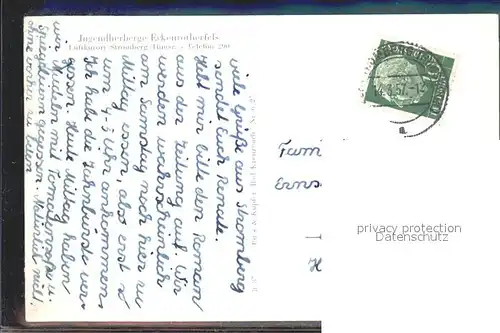 Jugendherberge Eckenrotherfels
Luftkurort Stromberg /Hunsr. - Telefon 290
viele Grüße aus Stromberg
sendet Euch Renate.
Hebt mir bitte den Roman
aus der Zeitung auf. Wir
werden wahrscheinlich
am Samstag noch hier zu
Mittag essen, also erst
um 4-5 Uhr ankommen.
Ich habe die Zahnbürste ver-
gessen. Heute Mittag haben
wir Nudeln mit Tomatensoße u.
Spiegeleiern gegessen. Natürlich nicht
ohne vorher zu beten
Fam
Erns
privacy protection
Datenschutz